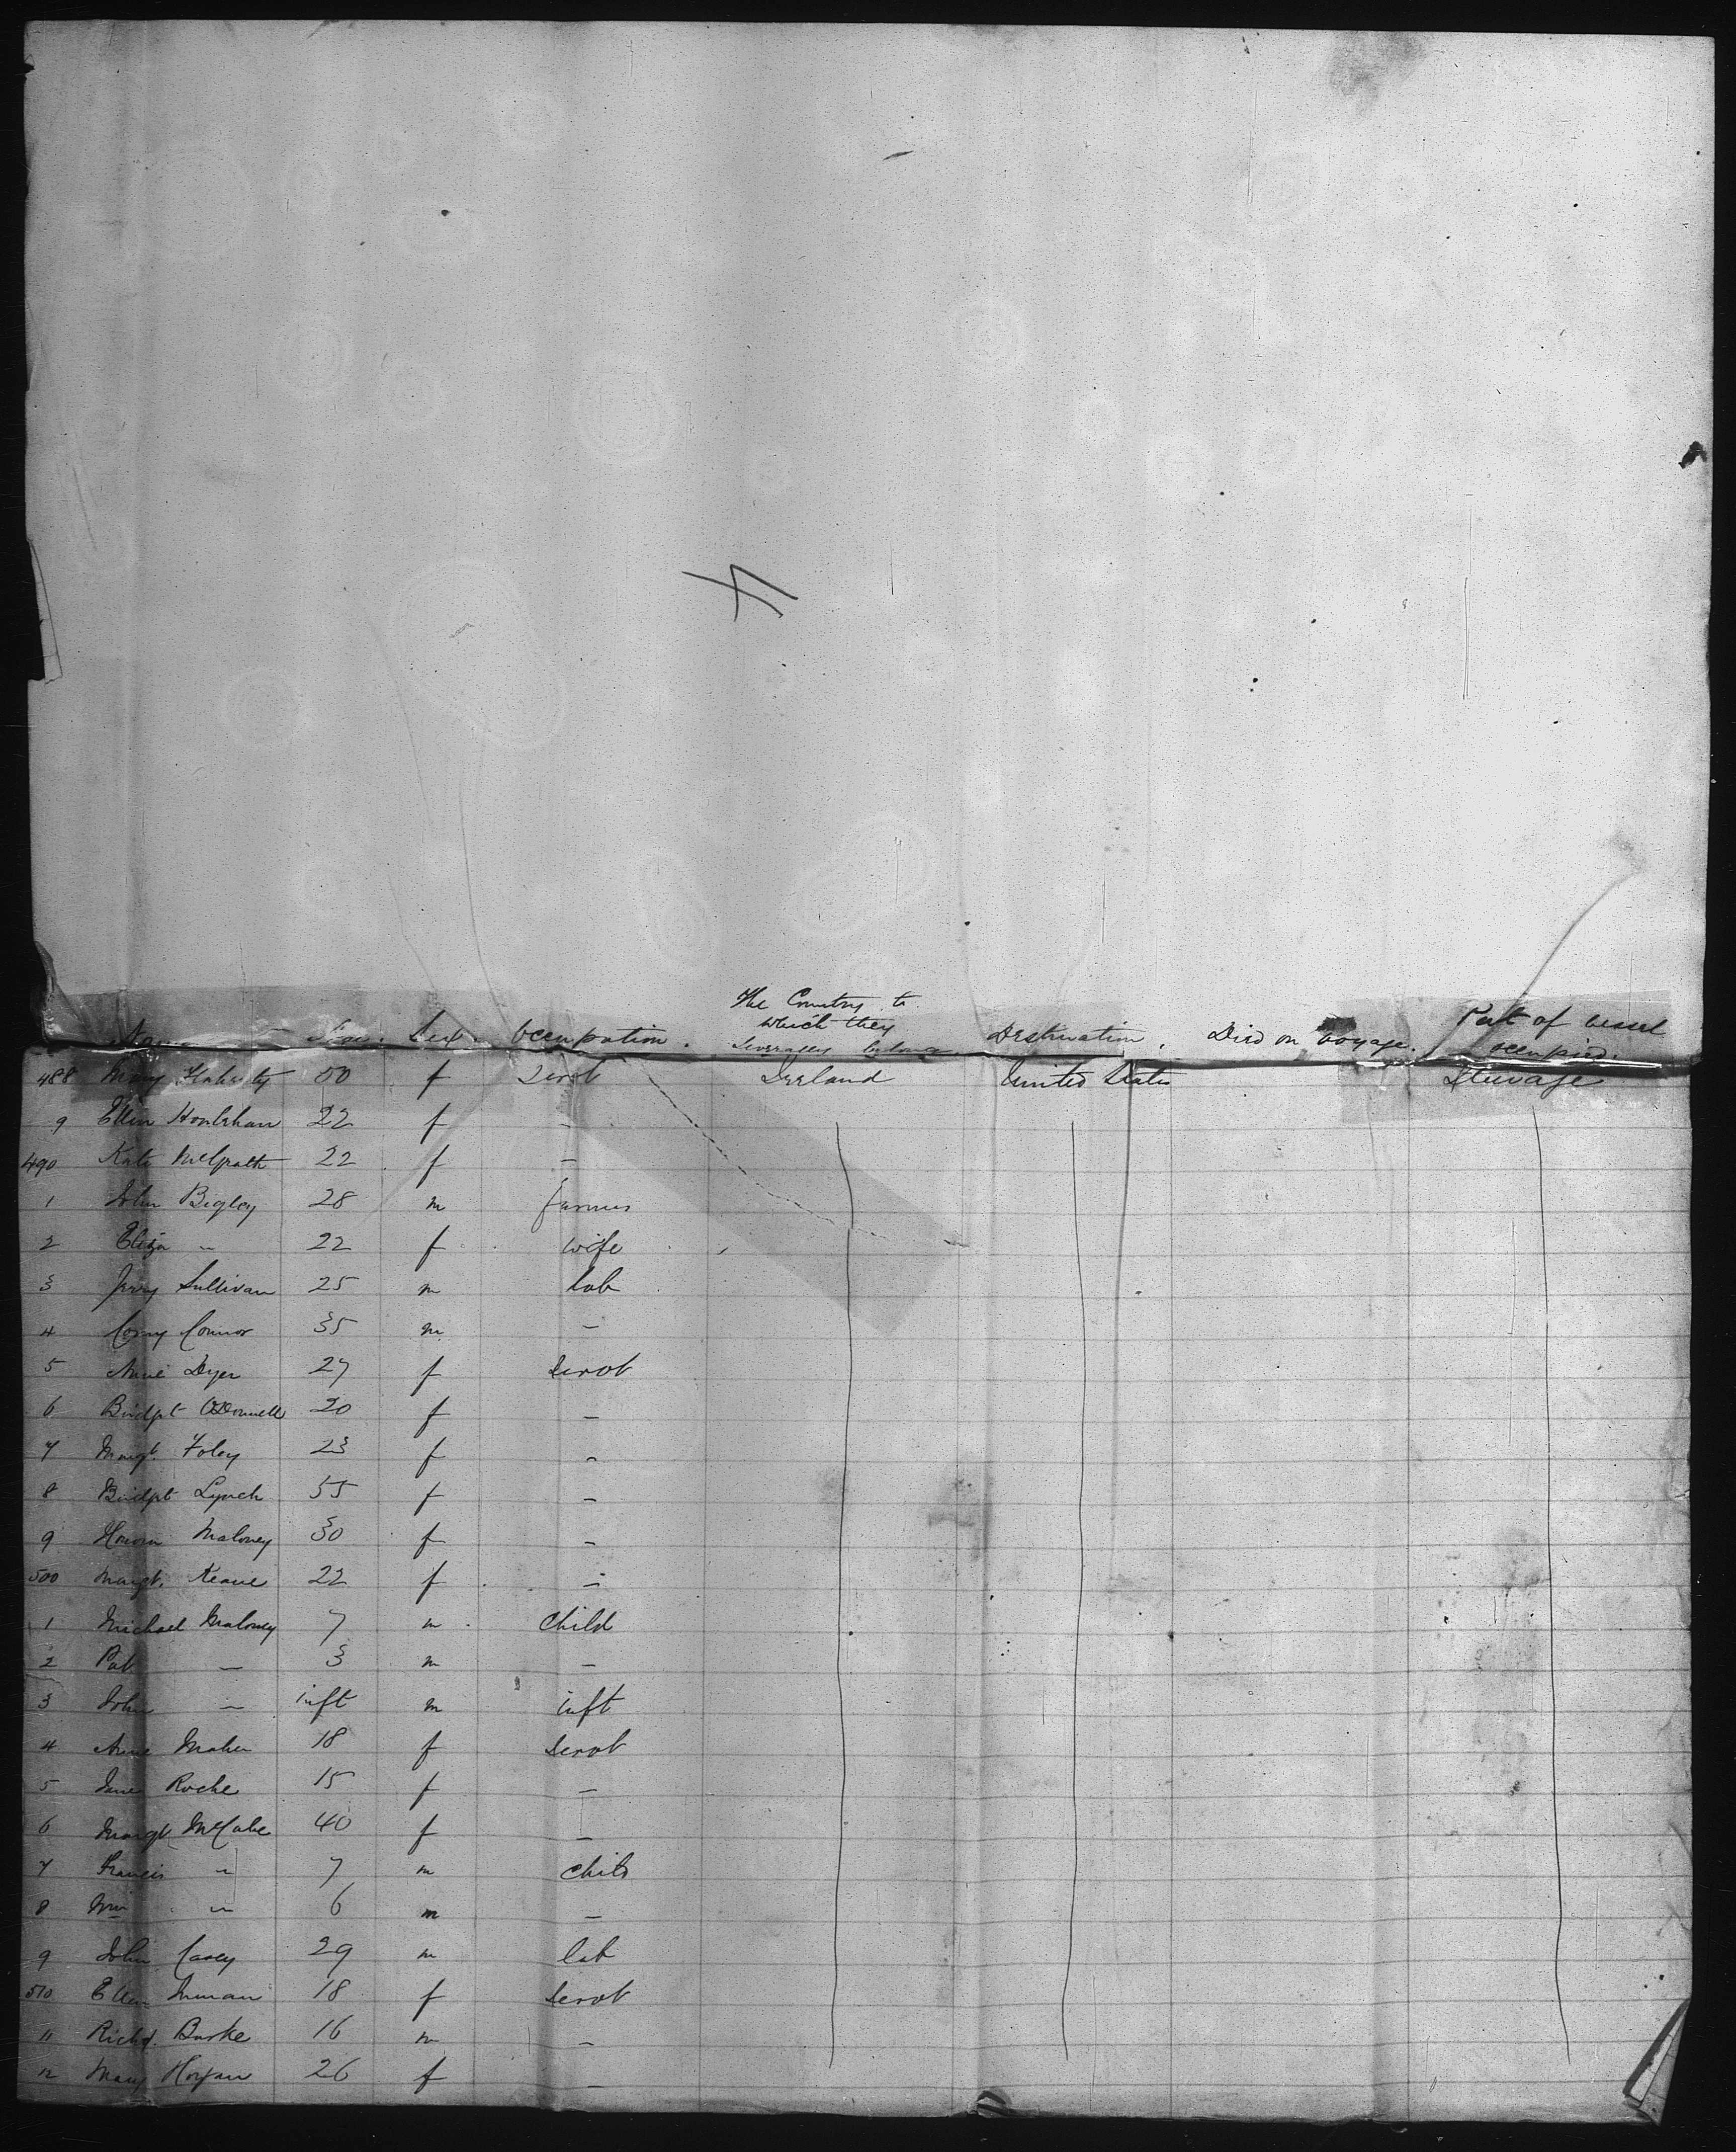 4
Name Age. Sex. Occupation. The Country to which they severally belong. Destination. Died on Voyage. Part of vessel occupied.
488 Mary Flaherty 50 f Servt Ireland United States Steerage
9 Ellen Houlehan 22 f -
490 Kate McGrath 22 f -
1 John Begley 28 m farmer
2 Eliza " 22 f wife
3 Jerry Sullivan 25 m lab
4 Corny Connor 35 m -
5 Anne Dyer 27 f Servt
6 Bridgt ODonnell 20 f -
7 Margt. Foley 23 f -
8 Bridgt Lynch 55 f -
9 Honora Maloney 30 f -
500 Margt. Keane 22 f -
1 Michael Maloney 7 m Child
2 Pat — 3 m -
3 John — inft m inft
4 Anne Maher 18 f Servt
5 Jane Roche 15 f -
6 Margt McCabe 40 f -
7 Francis " 7 m Child
8 Wm " 6 m -
9 John Casey 29 m lab
510 Ellen 18 f Servt
11 Richd. Burke 16 m -
12 Mary Hogan 26 f -